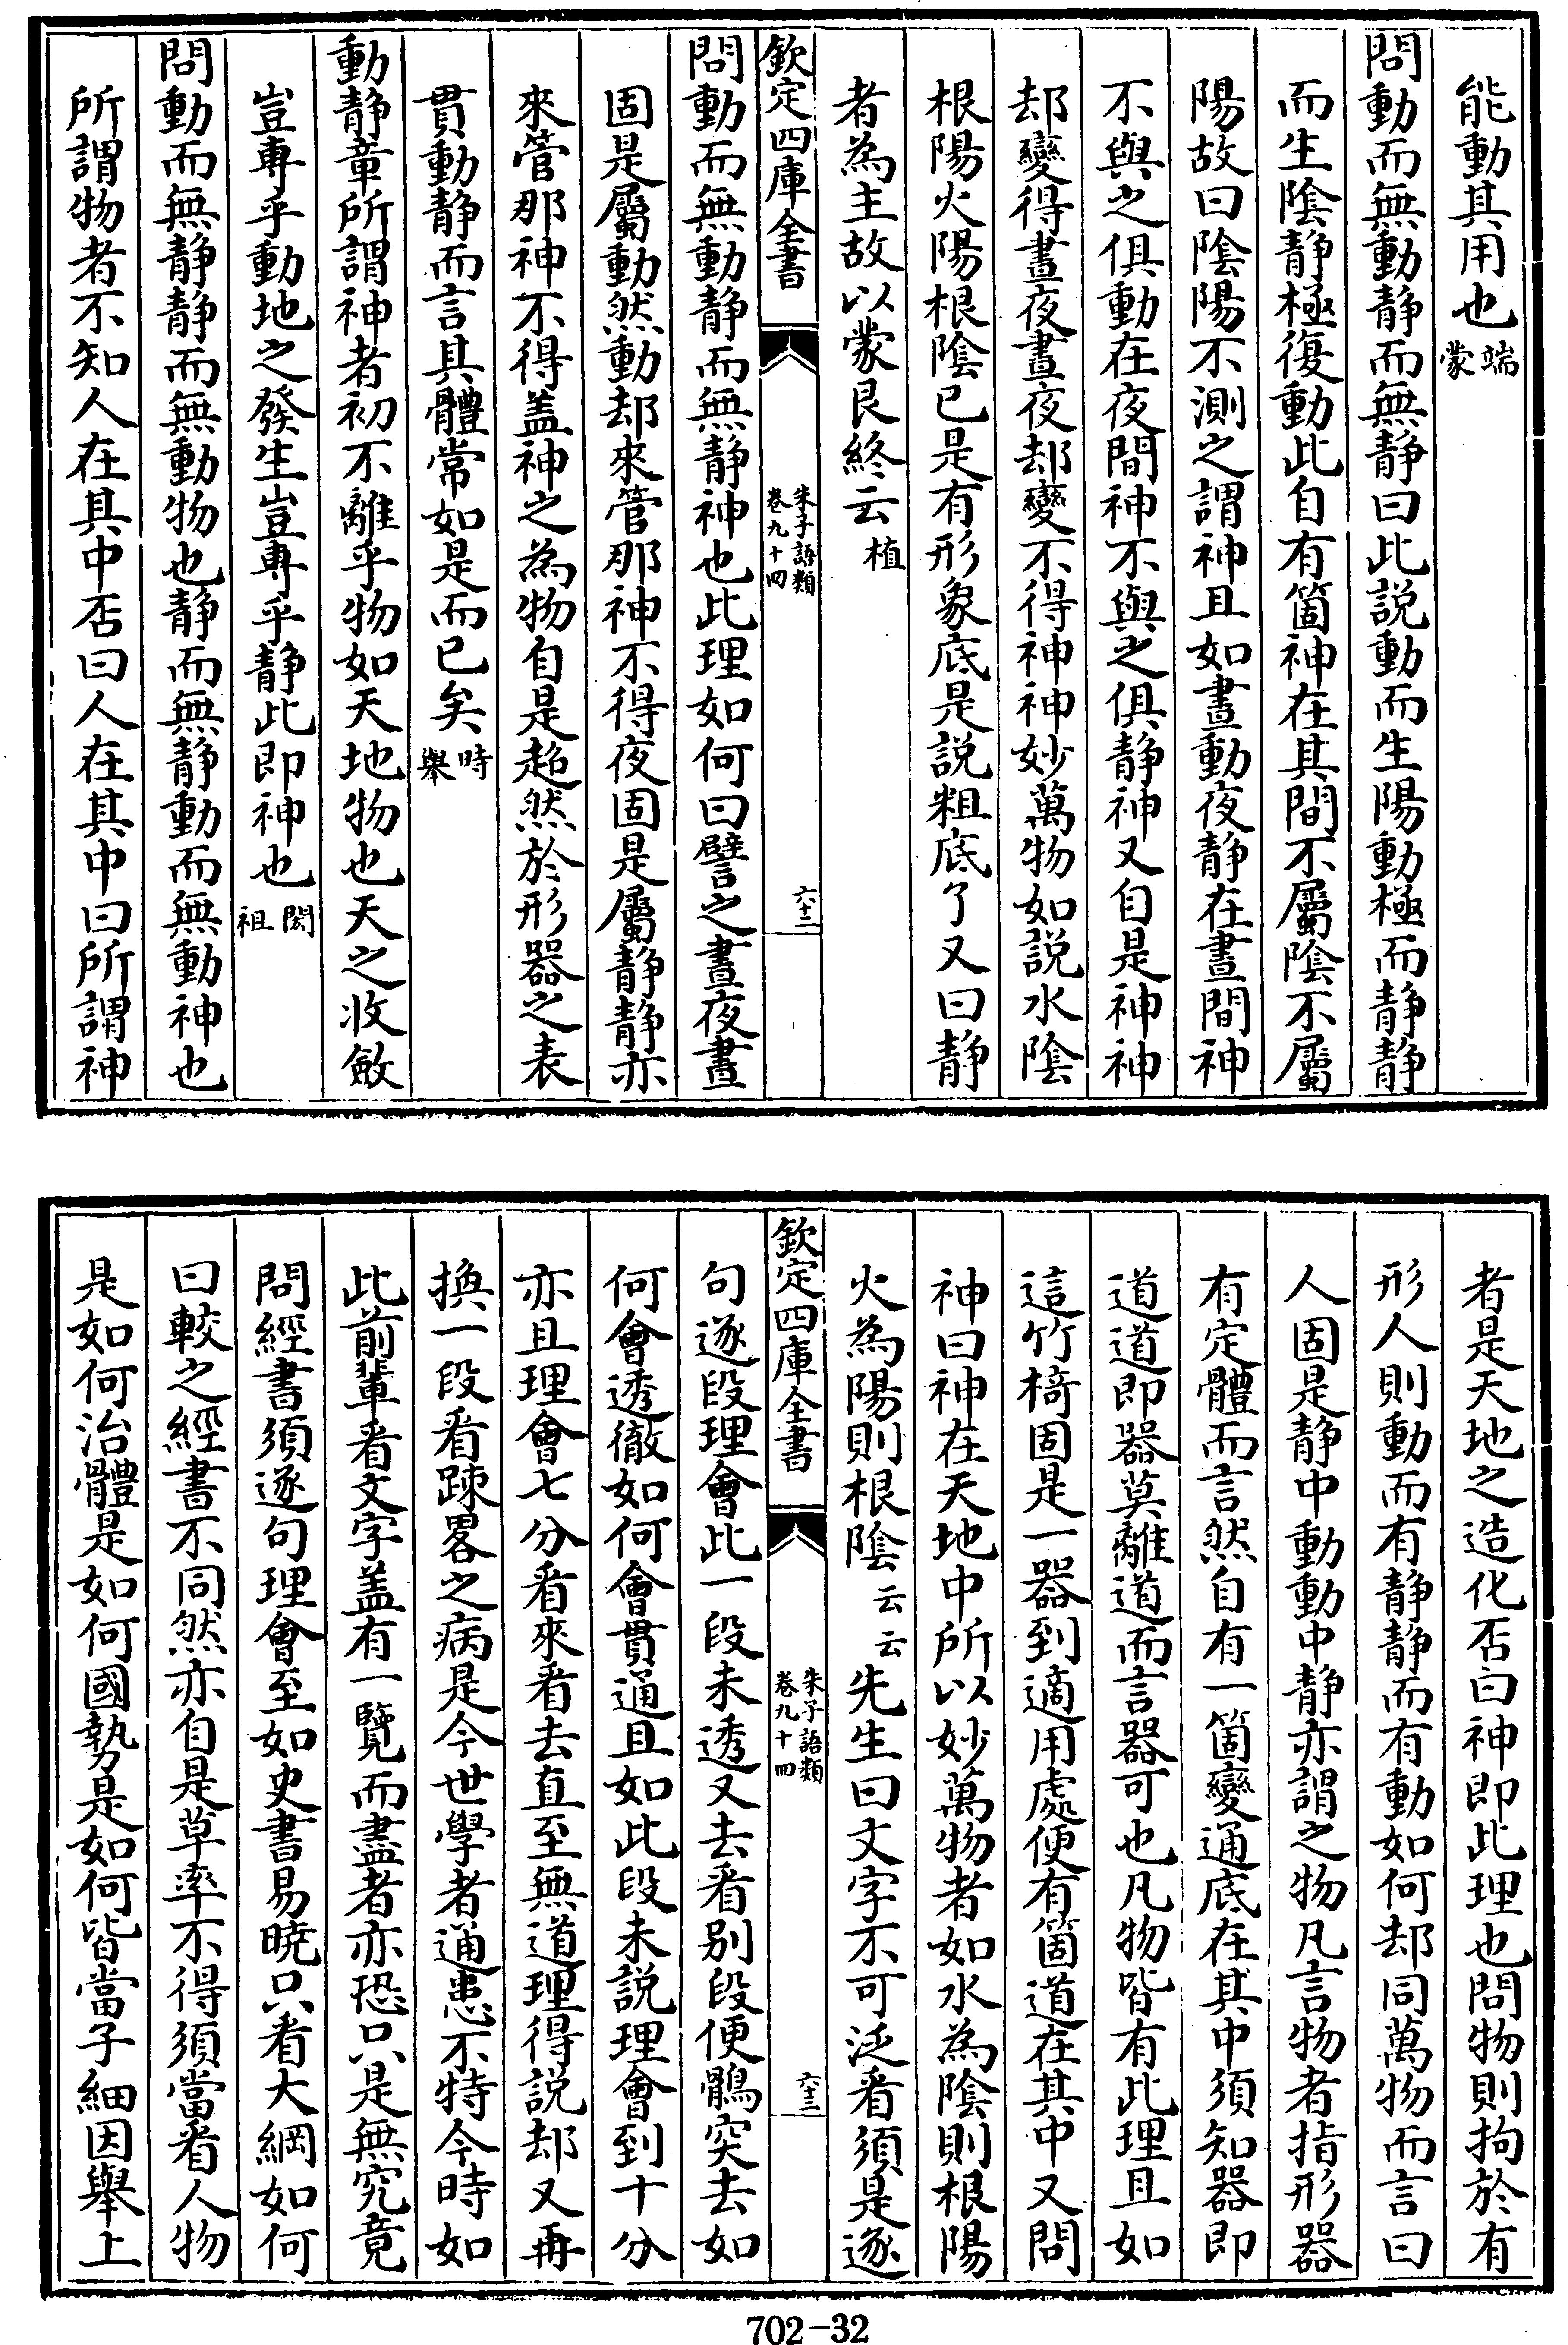 能動其用也端蒙
問動而無動静而無静曰此説動而生陽動極而静静
而生陰静極復動此自有箇神在其間不屬隂不屬
陽故曰隂陽不測之謂神且如晝動夜静在晝間神
不與之俱動在夜間神不與之俱静神又自是神神
却變得晝夜晝夜却變不得神神妙萬物如説水隂
根陽火陽根隂已是有形象底是説粗底了又曰静
者為主故以蒙艮終云植
欽定四庫全書
朱子語類
卷九十四
六十二
問動而無動静而無静神也此理如何曰譬之晝夜晝
固是屬動然動却來管那神不得夜固是屬静静亦
來管那神不得盖神之為物自是超然於形器之表
貫動静而言其體常如是而已矣時舉
動静章所謂神者初不離乎物如天地物也天之收斂
豈専乎動地之發生豈専乎静此即神也閎祖
問動而無静静而無動物也静而無静動而無動神也
所謂物者不知人在其中否曰人在其中曰所謂神
者是天地之造化否曰神即此理也問物則拘於有
形人則動而有静静而有動如何却同萬物而言曰
人固是静中動動中静亦謂之物凡言物者指形器
有定體而言然自有一箇變通底在其中須知器即
道道即器莫離道而言器可也凡物皆有此理且如
這竹椅固是一器到適用處便有箇道在其中又問
神曰神在天地中所以妙萬物者如水為隂則根陽
火為陽則根隂云云先生曰文字不可泛看須是逐
欽定四庫全書
朱子語類
卷九十四
六十三
句逐段理會此一段未透又去看别段便鶻突去如
何會透徹如何會貫通且如此段未説理會到十分
亦且理會七分看來看去直至無道理得説却又再
換一段看踈畧之病是今世學者通患不特今時如
此前輩看文字盖有一覽而盡者亦恐只是無究竟
問經書須逐句理會至如史書易曉只看大綱如何
曰較之經書不同然亦自是草率不得須當看人物
是如何治體是如何國勢是如何皆當子細因舉上
702-32